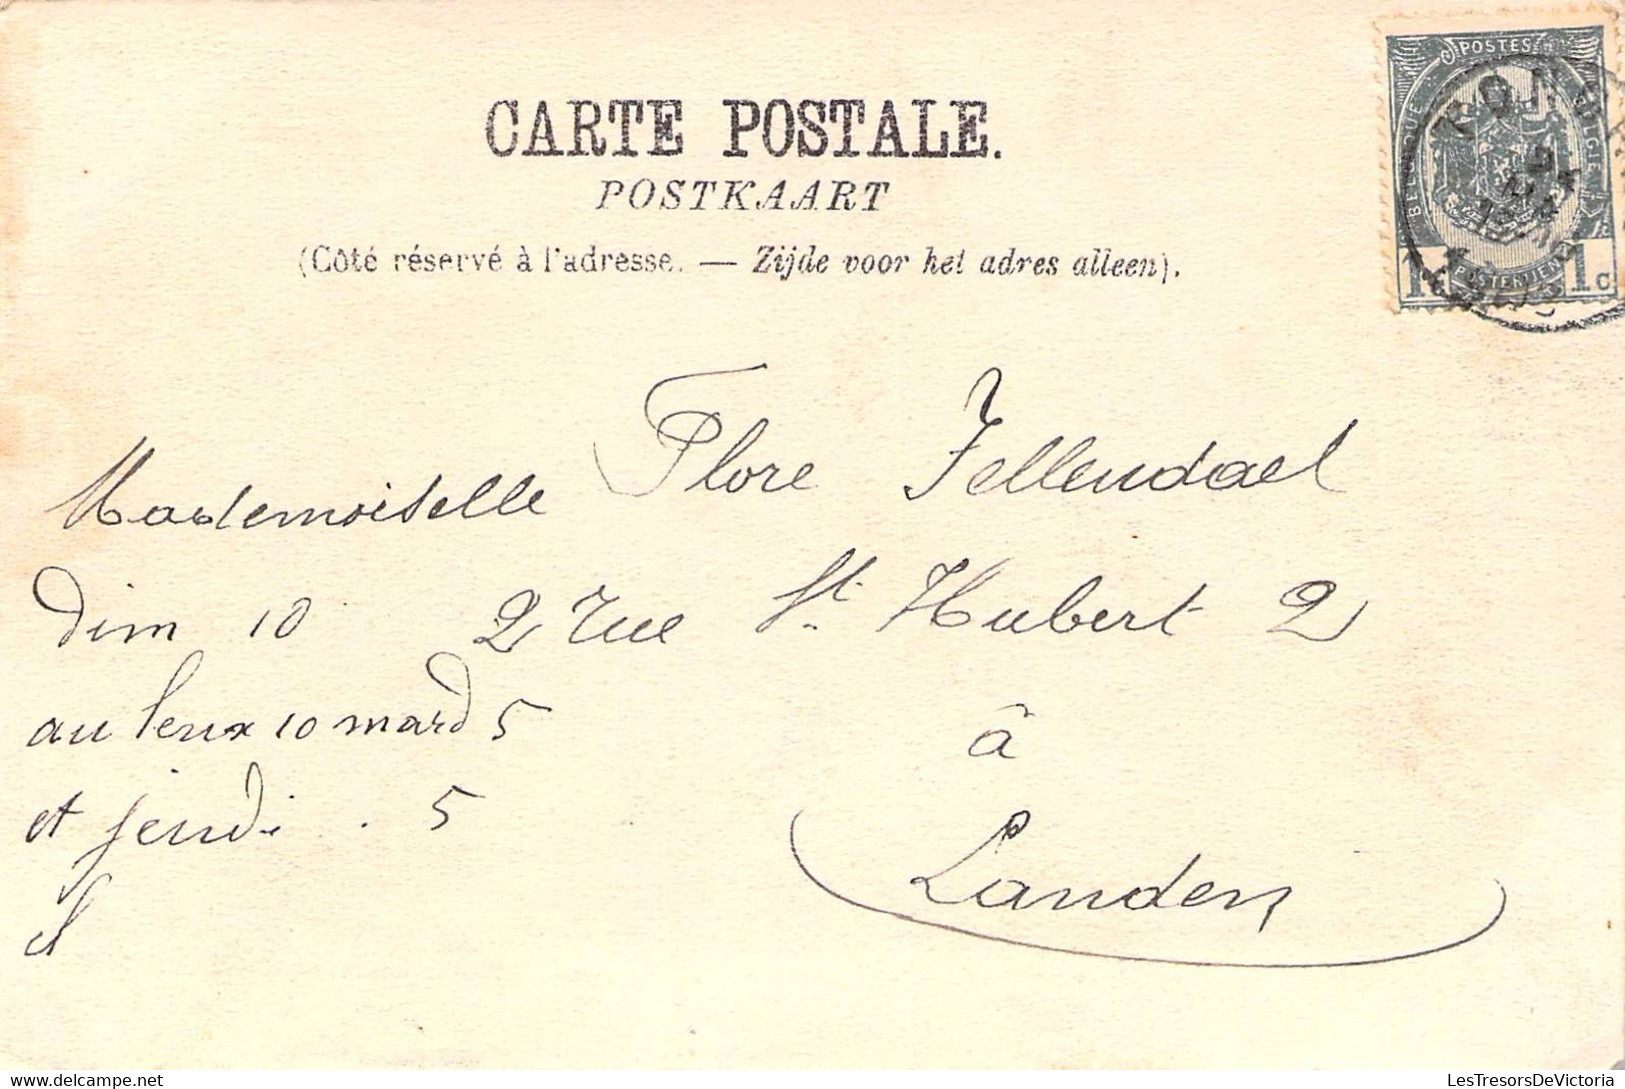 CARTE POSTALE.
POSTKAART
(Côté réservé à l'adresse. — Zijde voor het adres alleen).
POSTES
BELGIQUE
BELGIE
POSTERIJEN
1 1c
TONGEREN
Mademoiselle Flore Jellendael
dim 10 2 rue St. Hubert 2
au 10 mard 5 à
et jeudi. 5
Landen
LesTresorsDeVictoria